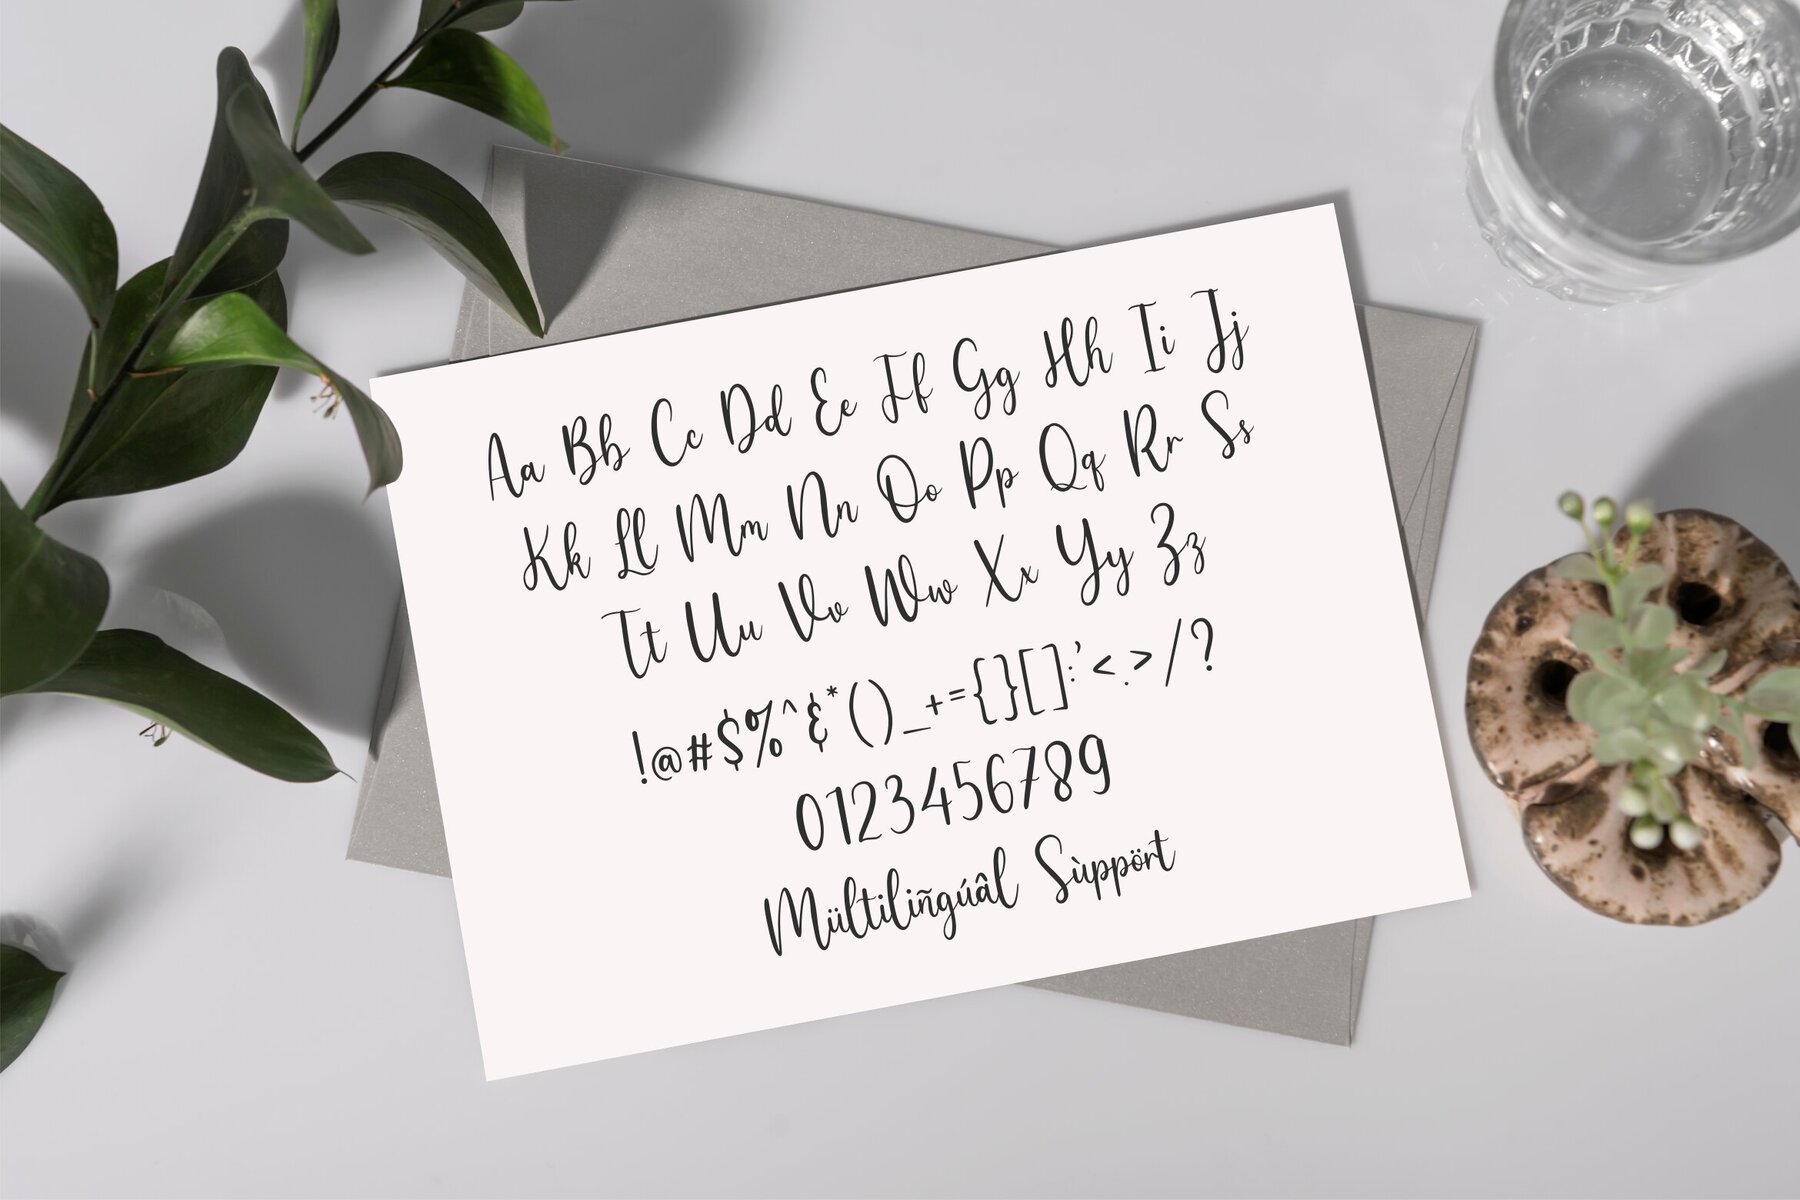 Aa Bb Cc Dd Ee Ff Gg Hh Ii Jj
Kk Ll Mm Nn Oo Pp Qq Rr Ss
Tt Uu Vv Ww Xx Yy Zz
!@#$%^&*()_+={}[]:'<.>/?
0123456789
Mültiliñgúâl Sùppört